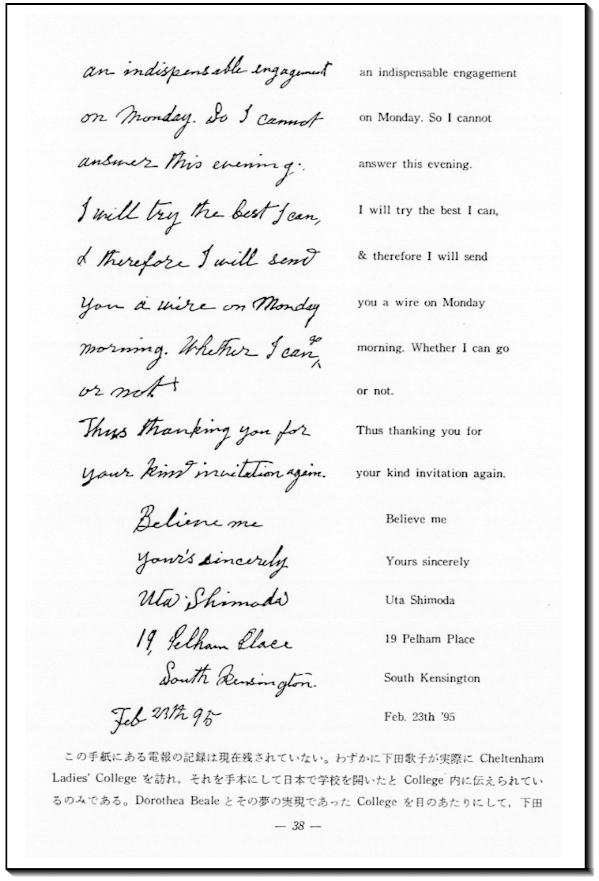 an indispensable engagement
on Monday. So I cannot
answer this evening.
I will try the best I can,
& therefore I will send
you a wire on Monday
morning. Whether I can go
or not
Thus thanking you for
your kind invitation again.
Believe me
Your's sincerely
Uta Shimoda
19, Pelham Place
South Kensington.
Feb 23th 95
an indispensable engagement
on Monday. So I cannot
answer this evening.
I will try the best I can,
& therefore I will send
you a wire on Monday
morning. Whether I can go
or not.
Thus thanking you for
your kind invitation again.
Believe me
Yours sincerely
Uta Shimoda
19 Pelham Place
South Kensington
Feb. 23th '95
この手紙にある電報の記録は現在残されていない。わずかに下田歌子が実際に Cheltenham
Ladies' College を訪れ，それを手本にして日本で学校を開いたと College 内に伝えられてい
るのみである。Dorothea Beale とその夢の実現であった College を目のあたりにして，下田
— 38 —